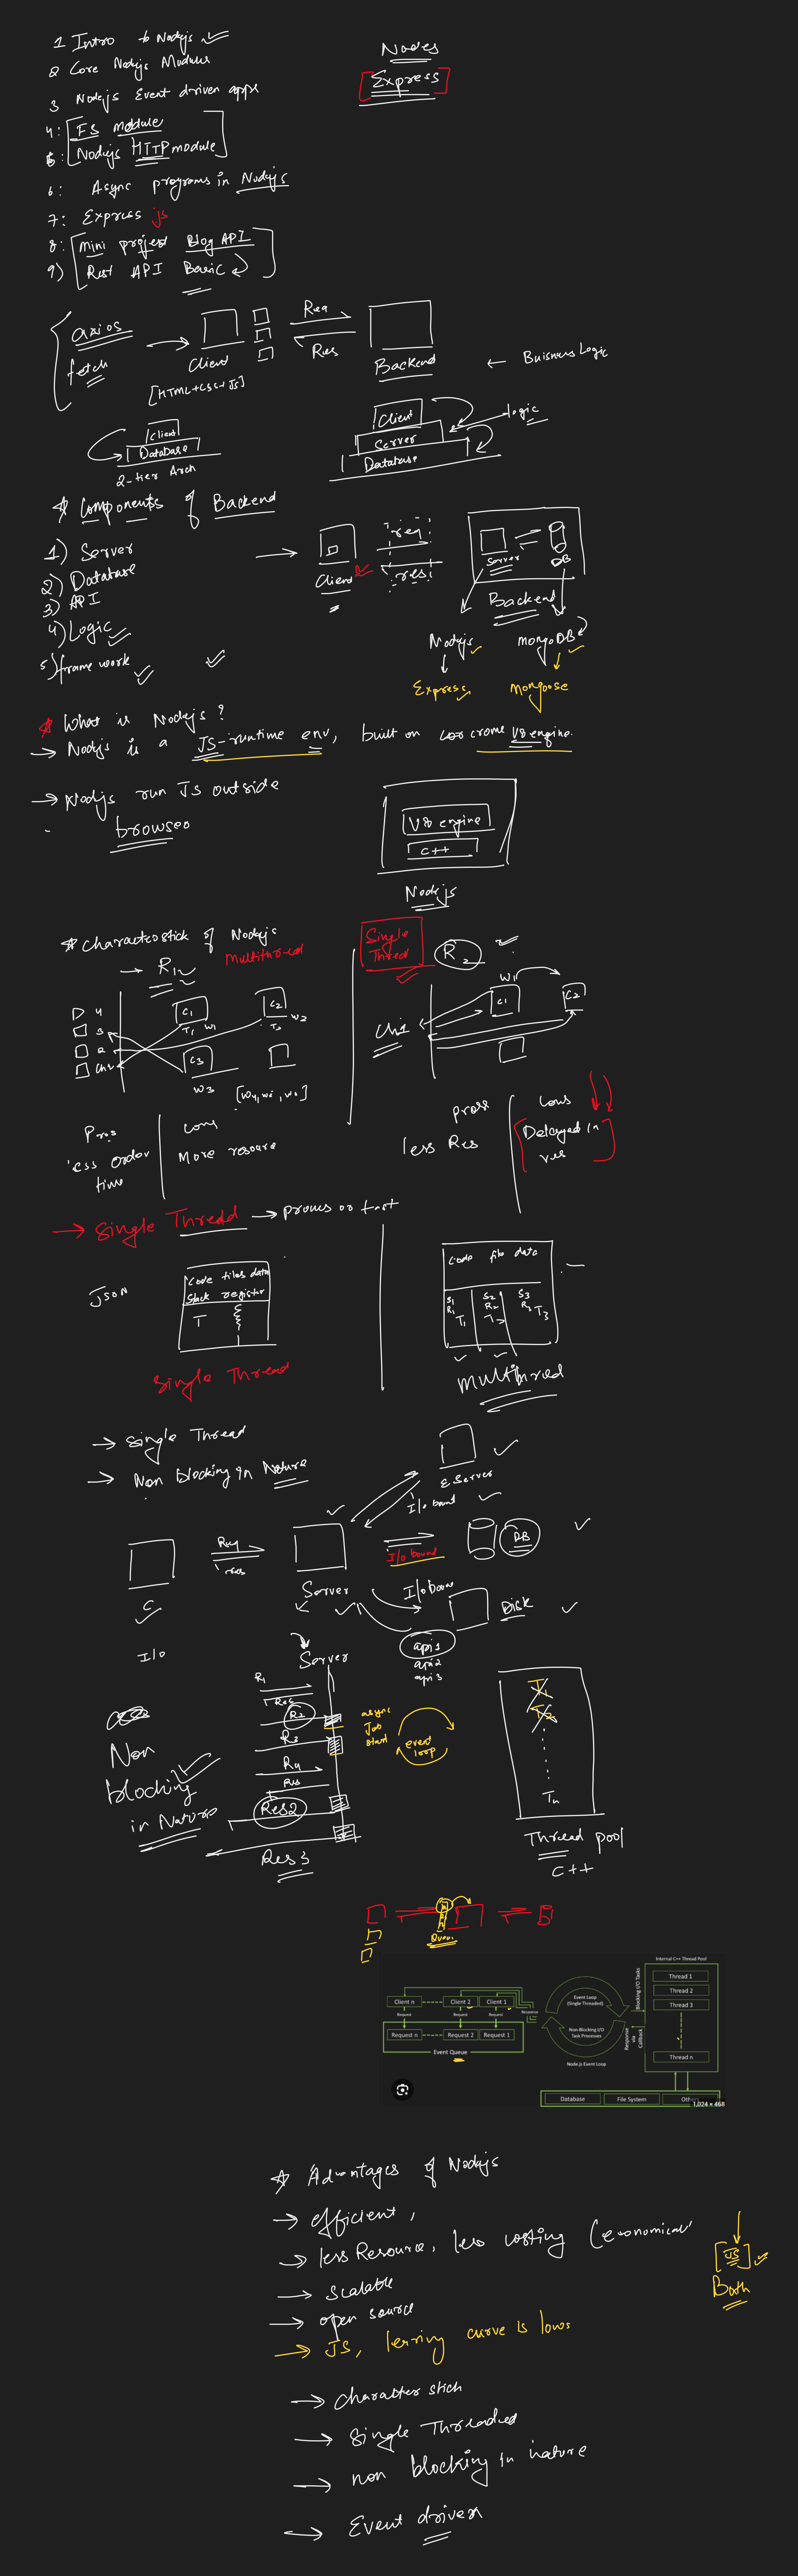 1 Intro to Nodejs
2 Core Nodejs Modules
3 Nodejs Event driven apps
4: FS module
5: Nodejs HTTP module
6: Async programs in Nodejs
7: Express js
8: mini project Blog API
9) Rest API Basic
Nodejs
Express
axios
fetch
Client
[HTML+CSS+JS]
Req
Res
Backend
← Buisness Logic
Client
Database
2-tier Arch
Client
Server
Database
logic
Components of Backend
1) Server
2) Database
3) API
4) Logic
5) frame work
Client
req
res
Server
DB
Backend
Nodejs
mongoDB
Express
Mongoose
What is Nodejs?
→ Nodejs is a JS-runtime env, built on crome V8 engine.
→ Nodejs run JS outside
browser
V8 engine
C++
Nodejs
# Characterstick of Nodejs
→ R1
Multithread
4
3
2
Ch1
C1
T1 W1
C2
T2 W2
C3
W3
Pros
less order
time
Cons
More resource
Single
Thread
R2
Ch1
W1
C1
C2
pross
less Res
Cons
Delayed in
res
→ Single Thread → proves or fast
JSON
Code files data
Stack register
T
Single Thread
Code file data
S1 S2 S3
R1 R2 R3
T1 T2 T3
Multithread
→ Single Thread
→ Non blocking in Nature
C
Req
res
Server
E Server
I/o bound
I/o bound
DB
I/o boun
Disk
api1
api2
api3
I/O
Server
Non
blocking
in Nature
R1
Res
R2
R3
R4
Res
Res2
Res3
async
Job
start
event
loop
T1
T2
Tn
Thread pool
C++
Queue
Client n
Client 2
Client 1
Request
Request
Request
Response
Request n
Request 2
Request 1
Event Queue
Event Loop
(Single Threaded)
Non-Blocking I/O
Task Processes
Node.js Event Loop
Blocking I/O Tasks
Response
via
Callback
Internal C++ Thread Pool
Thread 1
Thread 2
Thread 3
Thread n
Database
File System
Others
1,024 × 468
Advantages of Nodejs
→ efficient,
→ less Resource, less costing (economical
→ Scalable
→ open source
→ JS, lerning curve is lows
[JS]
Both
→ Character stich
→ Single Threaded
→ non blocking in nature
→ Event driven